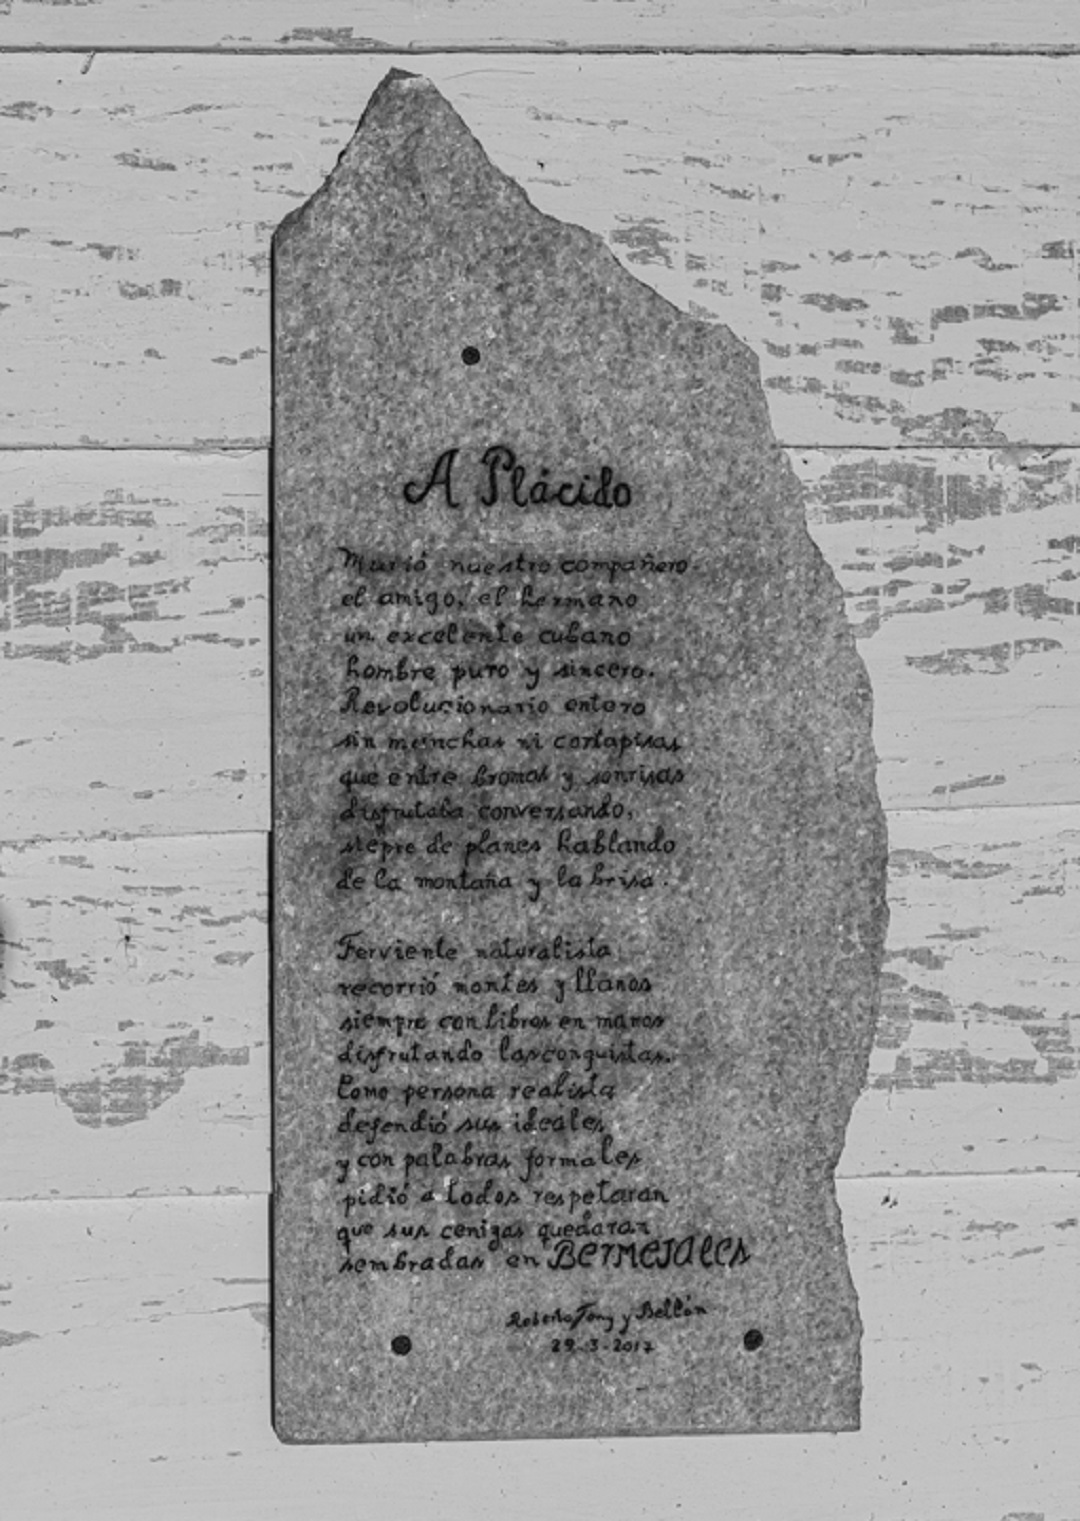 A Plácido
Murió nuestro compañero
el amigo, el hermano
un excelente cubano
hombre puro y sincero.
Revolucionario entero
sin menchas ni cortapisas
que entre bromas y sonrisas
disfrutaba conversando,
siepre de planes hablando
de la montaña y la brisa.
Ferviente naturalista
recorrió montes y llanos
siempre con libros en manos
disfrutando las conquistas.
Como persona realista
defendió sus ideales
y con palabras formales
pidió a todos respetaran
que sus cenizas quedaran
sembradas en BERMEJALES
Roberto, Tony y Bellón
29-3-2017